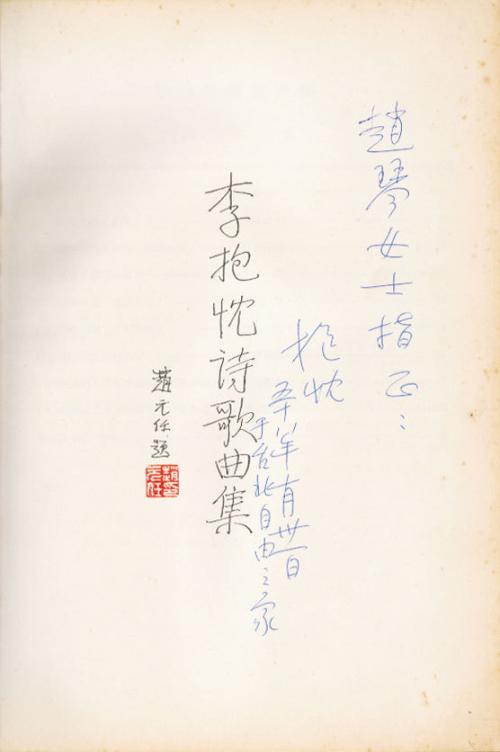 趙琴女士指正：
抱忱
五八年 月卅 日
于台北自由之家
李抱忱詩歌曲集
趙元任題